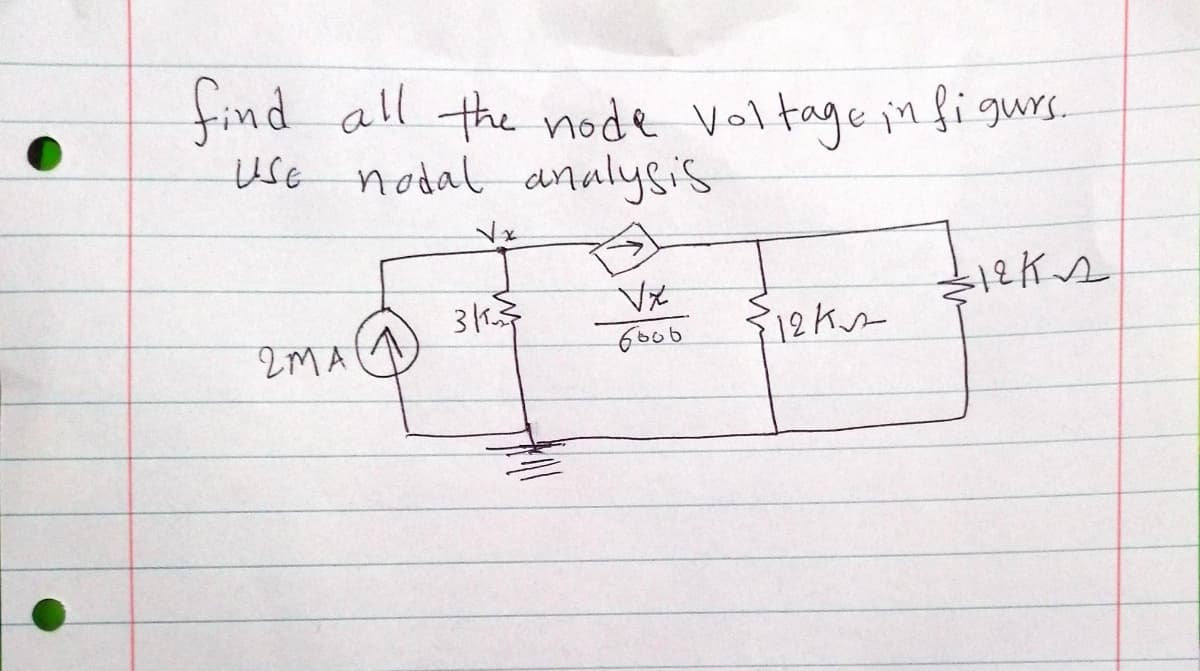 find all the node voltage in figurs.
use nodal analysis
Vx
12KΩ
3K
Vx
6000
12KΩ
2MA